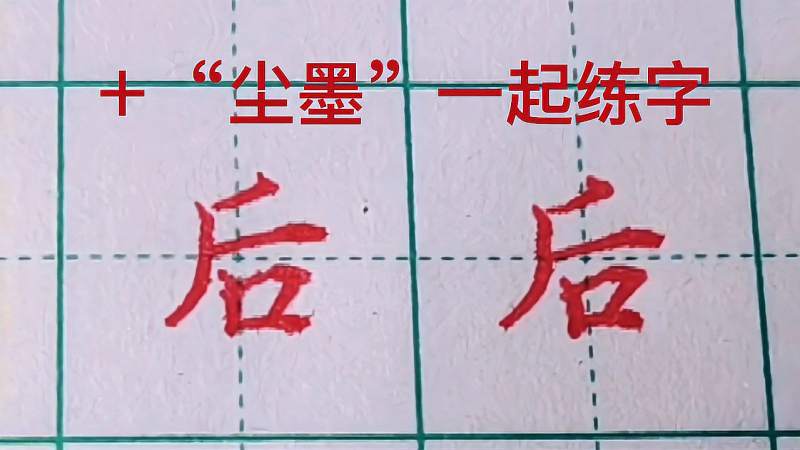 +“尘墨”一起练字
后 后